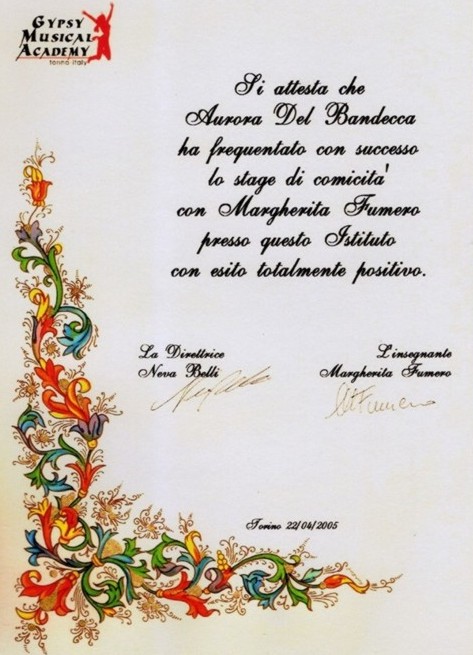 GYPSY
MUSICAL
ACADEMY
torino italy
Si attesta che
Aurora Del Bandecca
ha frequentato con successo
lo stage di comicita'
con Margherita Fumero
presso questo Istituto
con esito totalmente positivo.
La Direttrice
Neva Belli
L'insegnante
Margherita Fumero
M Fumero
Torino 22/04/2005